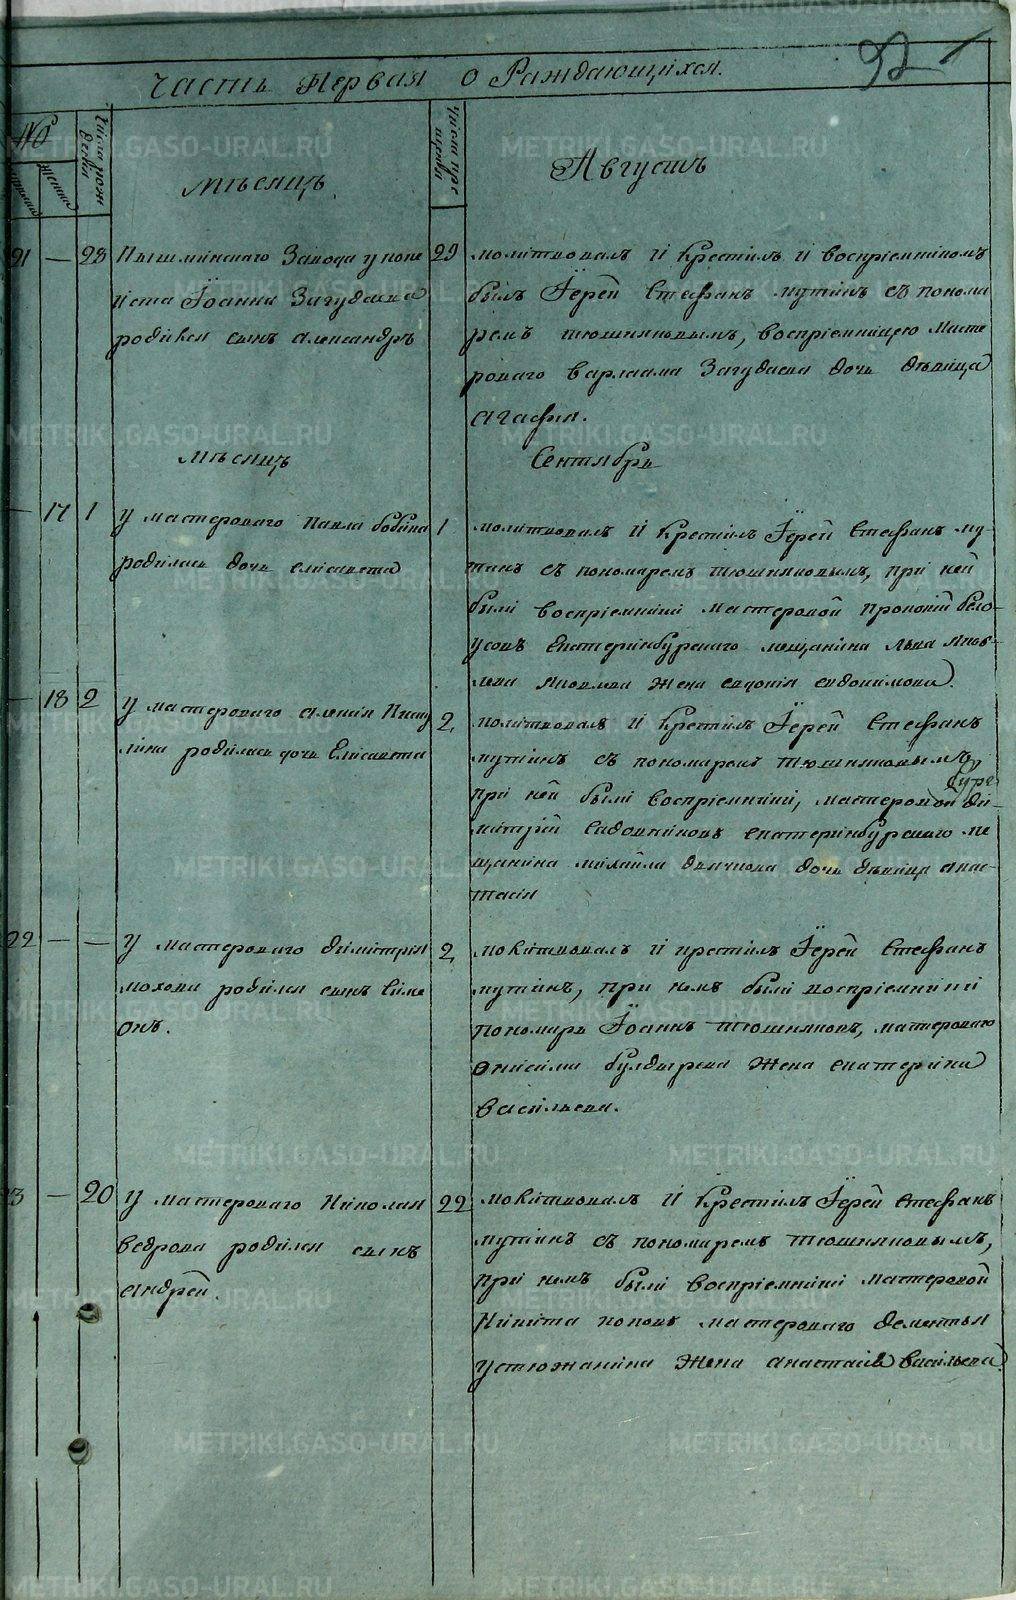 92
Часть Первая о Раждающихся.
№
женска
Числа рож
денія
Мѣсяцъ
Числа кре
щенія
Августъ
21 — 28 Пышминскаго Завода у поно
29 молитвовалъ и крестилъ и воспріемникомъ
былъ Іерей Стефанъ Мутинъ съ понома
родился сынъ Александръ
ремъ Тюшняковымъ, воспріемницею масте
роваго Варлаама Загудаева дочь дѣвица
Агафія.
Мѣсяцъ
Сентябрь
— 17 1 У мастероваго Павла Бабина
родилась дочь Елисавета
1 молитвовалъ и крестилъ Іерей Стефанъ Му-
тинъ съ пономаремъ Тюшняковымъ, при ней
были воспріемники мастеровой Прокопій Бело-
усовъ Екатеринбурскаго мещанина Льва Яков-
лева Яковлева жена Евдокія Евдокимова.
— 18 2 У мастероваго Алексія Пичу
гина родилась дочь Елисавета
2 молитвовалъ и крестилъ Іерей Стефанъ
Мутинъ съ пономаремъ Тюшняковымъ,
при ней были воспріемники, мастеровой Ди-
митрій Садовниковъ Екатеринбурскаго ме
щанина Михаила дочь дѣвица Анас-
тасія
22 — — У мастероваго Димитрія
Мохова родился сынъ Симе
онъ.
2 молитвовалъ и крестилъ Іерей Стефанъ
Мутинъ, при немъ были воспріемники
пономарь Іоаннъ Тюшняковъ, мастероваго
Онисима Булдырева жена Екатерина
Васильева.
23 — 20 У мастероваго Николая
Ведрова родился сынъ
Андрей.
22 молитвовалъ и крестилъ Іерей Стефанъ
Мутинъ съ пономаремъ Тюшняковымъ,
при немъ были воспріемники мастеровой
Никита Поповъ мастероваго Дементья
Устюжанина жена Анастасія Васильева
METRIKI.GASO-URAL.RU